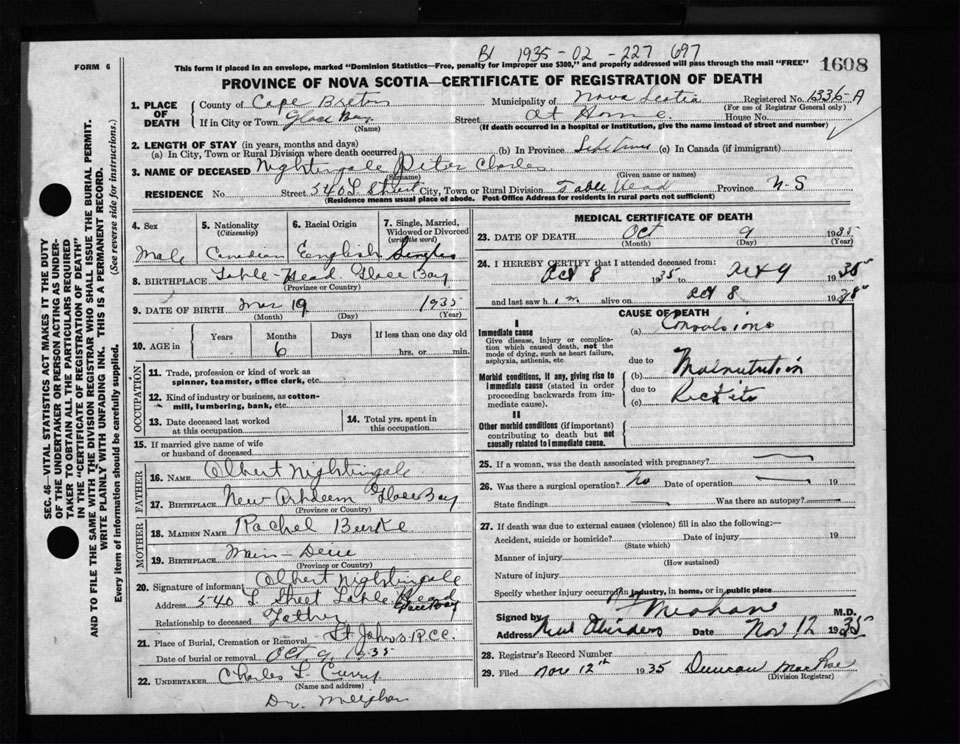 B1 1935-02-227 697
FORM 6
This form if placed in an envelope, marked "Dominion Statistics—Free, penalty for improper use $300," and properly addressed will pass through the mail "FREE"
1608
PROVINCE OF NOVA SCOTIA—CERTIFICATE OF REGISTRATION OF DEATH
SEC. 46—VITAL STATISTICS ACT MAKES IT THE DUTY
OF THE UNDERTAKER OR PERSON ACTING AS UNDER-
TAKER TO OBTAIN ALL THE PARTICULARS REQUIRED
IN THE "CERTIFICATE OF REGISTRATION OF DEATH"
AND TO FILE THE SAME WITH THE DIVISION REGISTRAR WHO SHALL ISSUE THE BURIAL PERMIT.
WRITE PLAINLY WITH UNFADING INK. THIS IS A PERMANENT RECORD.
Every item of information should be carefully supplied. (See reverse side for instructions.)
1. PLACE OF DEATH
County of Cape Breton Municipality of Nova Scotia Registered No. 1336-A
(For use of Registrar General only)
If in City or Town Glace Bay Street At Home House No.
(Name) (If death occurred in a hospital or institution, give the name instead of street and number)
2. LENGTH OF STAY (in years, months and days)
(a) In City, Town or Rural Division where death occurred (b) In Province Life time (c) In Canada (if immigrant)
3. NAME OF DECEASED Nightingale Peter Charles
(Surname) (Given name or names)
RESIDENCE No. Street 540 L Street City, Town or Rural Division Table Head Province N-S
(Residence means usual place of abode. Post-Office Address for residents in rural parts not sufficient)
4. Sex 5. Nationality (Citizenship) 6. Racial Origin 7. Single, Married, Widowed or Divorced (write the word)
Male Canadian English Single
8. BIRTHPLACE Table-Head. Glace Bay
(Province or Country)
9. DATE OF BIRTH Mar 19 1935
(Month) (Day) (Year)
10. AGE in Years Months Days If less than one day old
6 hrs. or min.
OCCUPATION
11. Trade, profession or kind of work as
spinner, teamster, office clerk, etc.
12. Kind of industry or business, as cotton-
mill, lumbering, bank, etc.
13. Date deceased last worked
at this occupation
14. Total yrs. spent in
this occupation
15. If married give name of wife
or husband of deceased
FATHER
16. NAME Albert Nightingale
17. BIRTHPLACE New Glace Bay
(Province or Country)
MOTHER
18. MAIDEN NAME Rachel Burke
19. BIRTHPLACE Main-
(Province or Country)
20. Signature of informant Albert Nightingale
Address 540 L Street Table Head
Glace Bay
Relationship to deceased Father
21. Place of Burial, Cremation or Removal St John's R.C.C.
Date of burial or removal Oct 9, 1935
22. UNDERTAKER Charles L Curry
(Name and address)
Dr. Meighan
MEDICAL CERTIFICATE OF DEATH
23. DATE OF DEATH Oct 9 1935
(Month) (Day) (Year)
24. I HEREBY CERTIFY that I attended deceased from:
Oct 8 1935 to Oct 9 1935
and last saw him alive on Oct 8 1935
CAUSE OF DEATH
I
Immediate cause
Give disease, injury or complica-
tion which caused death, not the
mode of dying, such as heart failure,
asphyxia, asthenia, etc.
(a) Convulsions
due to
Morbid conditions, if any, giving rise to
immediate cause (stated in order
proceeding backwards from im-
mediate cause).
(b) Malnutrition
due to
(c)
II
Other morbid conditions (if important)
contributing to death but not
causally related to immediate cause.
25. If a woman, was the death associated with pregnancy?
26. Was there a surgical operation? No Date of operation 19
State findings Was there an autopsy?
27. If death was due to external causes (violence) fill in also the following:—
Accident, suicide or homicide? Date of injury 19
(State which)
Manner of injury
(How sustained)
Nature of injury
Specify whether injury occurred in industry, in home, or in public place
Signed by M.D.
Address New Date Nov 12 1935
28. Registrar's Record Number
29. Filed Nov 12th 1935 Duncan MacRae
(Division Registrar)